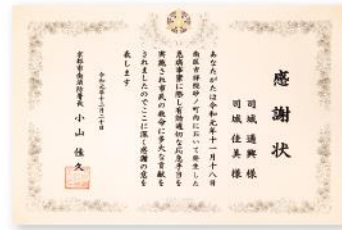 感謝状
司城通興様
司城佳美様
あなたがたは令和元年十一月十八日
南区吉祥院砂ノ町内において発生した
救急事案に際し有効適切な応急手当を
実施され市民の救命に多大な貢献を
されましたのでここに深く感謝の意を
表します
令和元年十二月二十日
京都市南消防署長 小山佳久